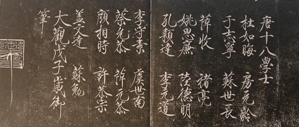 唐十八學士
杜如晦 房玄齡
于志寧 蘇世長
薛收 褚亮
姚思廉 陸德明
孔穎達 李玄道
李守素 虞世南
蔡允恭 薛元敬
顏相時 許敬宗
蓋文達 蘇勗
大觀戊子歲御
筆